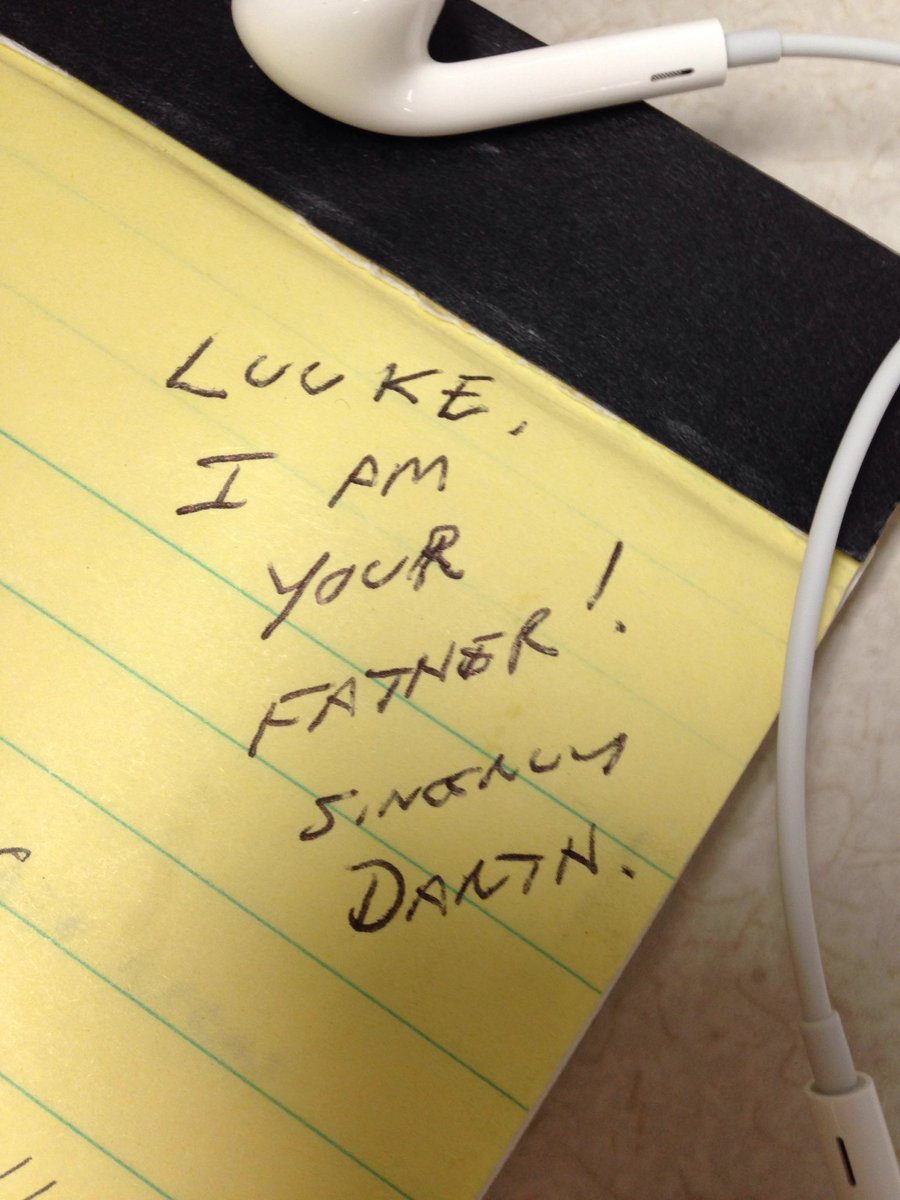 LUUKE,
I AM
YOUR
FATHER!
SINCERELY
DARTH.